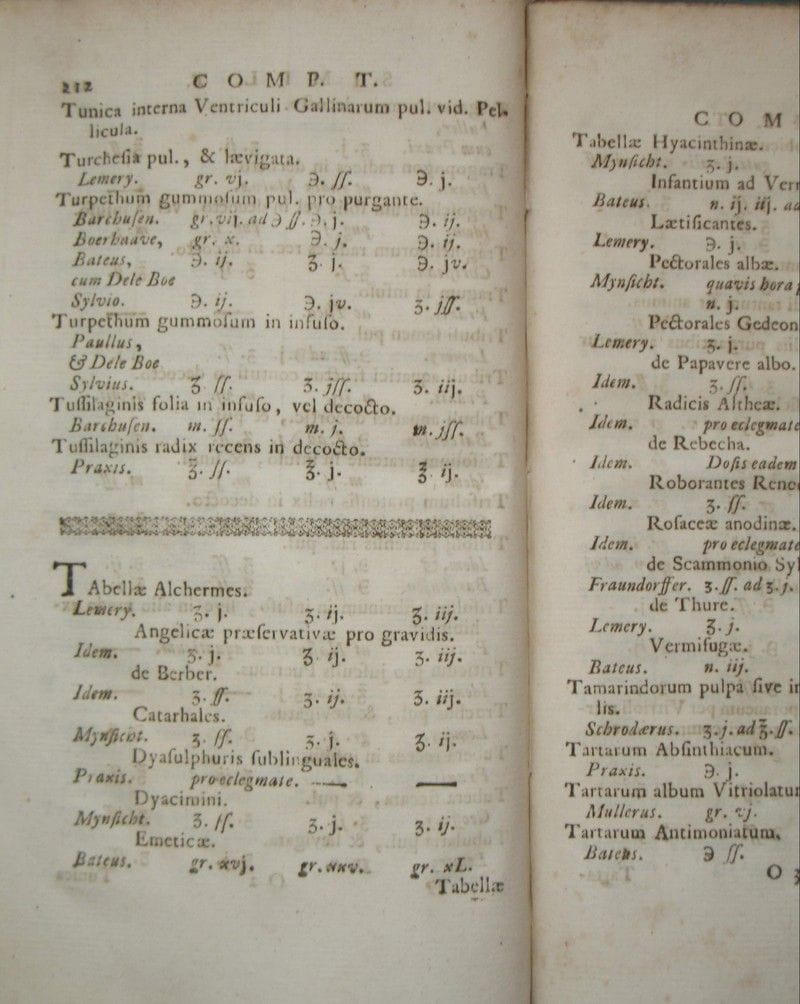 212 COMP. T.
Tunica interna Ventriculi Gallinarum pul. vid. Pel-
licula.
Turchesia pul., & lævigata.
Lemery. gr. vj. ℈. ſſ. ℈. j.
Turpethum gummoſum pul. pro purgante.
Barchuſen. gr. vij. ad ℈ ſſ. ℈. j. ℈. ij.
Boerhaave, gr. x. ℈. j. ℈. ij.
Bateus, ℈. ij. ʒ. j. ℈. jv.
cum Dele Boe
Sylvio. ℈. ij. ℈. jv. ʒ. jſſ.
Turpethum gummoſum in infuſo.
Paullus,
& Dele Boe
Sylvius. ʒ ſſ. ʒ. jſſ. ʒ. iij.
Tuſſilaginis folia in infuſo, vel decocto.
Barchuſen. m. ſſ. m. j. m. jſſ.
Tuſſilaginis radix recens in decocto.
Praxis. ℥. ſſ. ℥. j. ℥ ij.
TAbellæ Alchermes.
Lemery. ʒ. j. ʒ. ij. ʒ. iij.
Angelicæ præſervativæ pro gravidis.
Idem. ʒ. j. ʒ ij. ʒ. iij.
de Berber.
Idem. ʒ. ſſ. ʒ. ij. ʒ. iij.
Catarhales.
Mynſicht. ʒ. ſſ. ʒ. j. ʒ. ij.
Dyaſulphuris ſublinguales.
Praxis. pro eclegmate. —— ——
Dyacimini.
Mynſicht. ʒ. ſſ. ʒ. j. ʒ. ij.
Emeticæ.
Bateus. gr. xvj. gr. xxv. gr. xL.
Tabellæ
COM
Tabellæ Hyacinthinæ.
Mynſicht. ʒ. j.
Infantium ad Ver
Bateus. n. ij. iij. ad
Lætificantes.
Lemery. ℈. j.
Pectorales albæ.
Mynſicht. quavis hora
n. j.
Pectorales Gedeon
Lemery. ʒ. j.
de Papavere albo.
Idem. ʒ. ſſ.
Radicis Altheæ.
Idem. pro eclegmate
de Rebecha.
Idem. Doſis eadem
Roborantes Rene
Idem. ʒ. ſſ.
Roſaceæ anodinæ.
Idem. pro eclegmate
de Scammonio Syl
Fraundorffer. ʒ. ſſ. ad ʒ. j.
de Thure.
Lemery. ʒ. j.
Vermifugæ.
Bateus. n. iij.
Tamarindorum pulpa ſive in
lis.
Schroderus. ʒ. j. ad ℥. ſſ.
Tartarum Abſinthiacum.
Praxis. ℈. j.
Tartarum album Vitriolatu
Mullerus. gr. vj.
Tartarum Antimoniatum.
Bateus. ℈ ſſ.
O